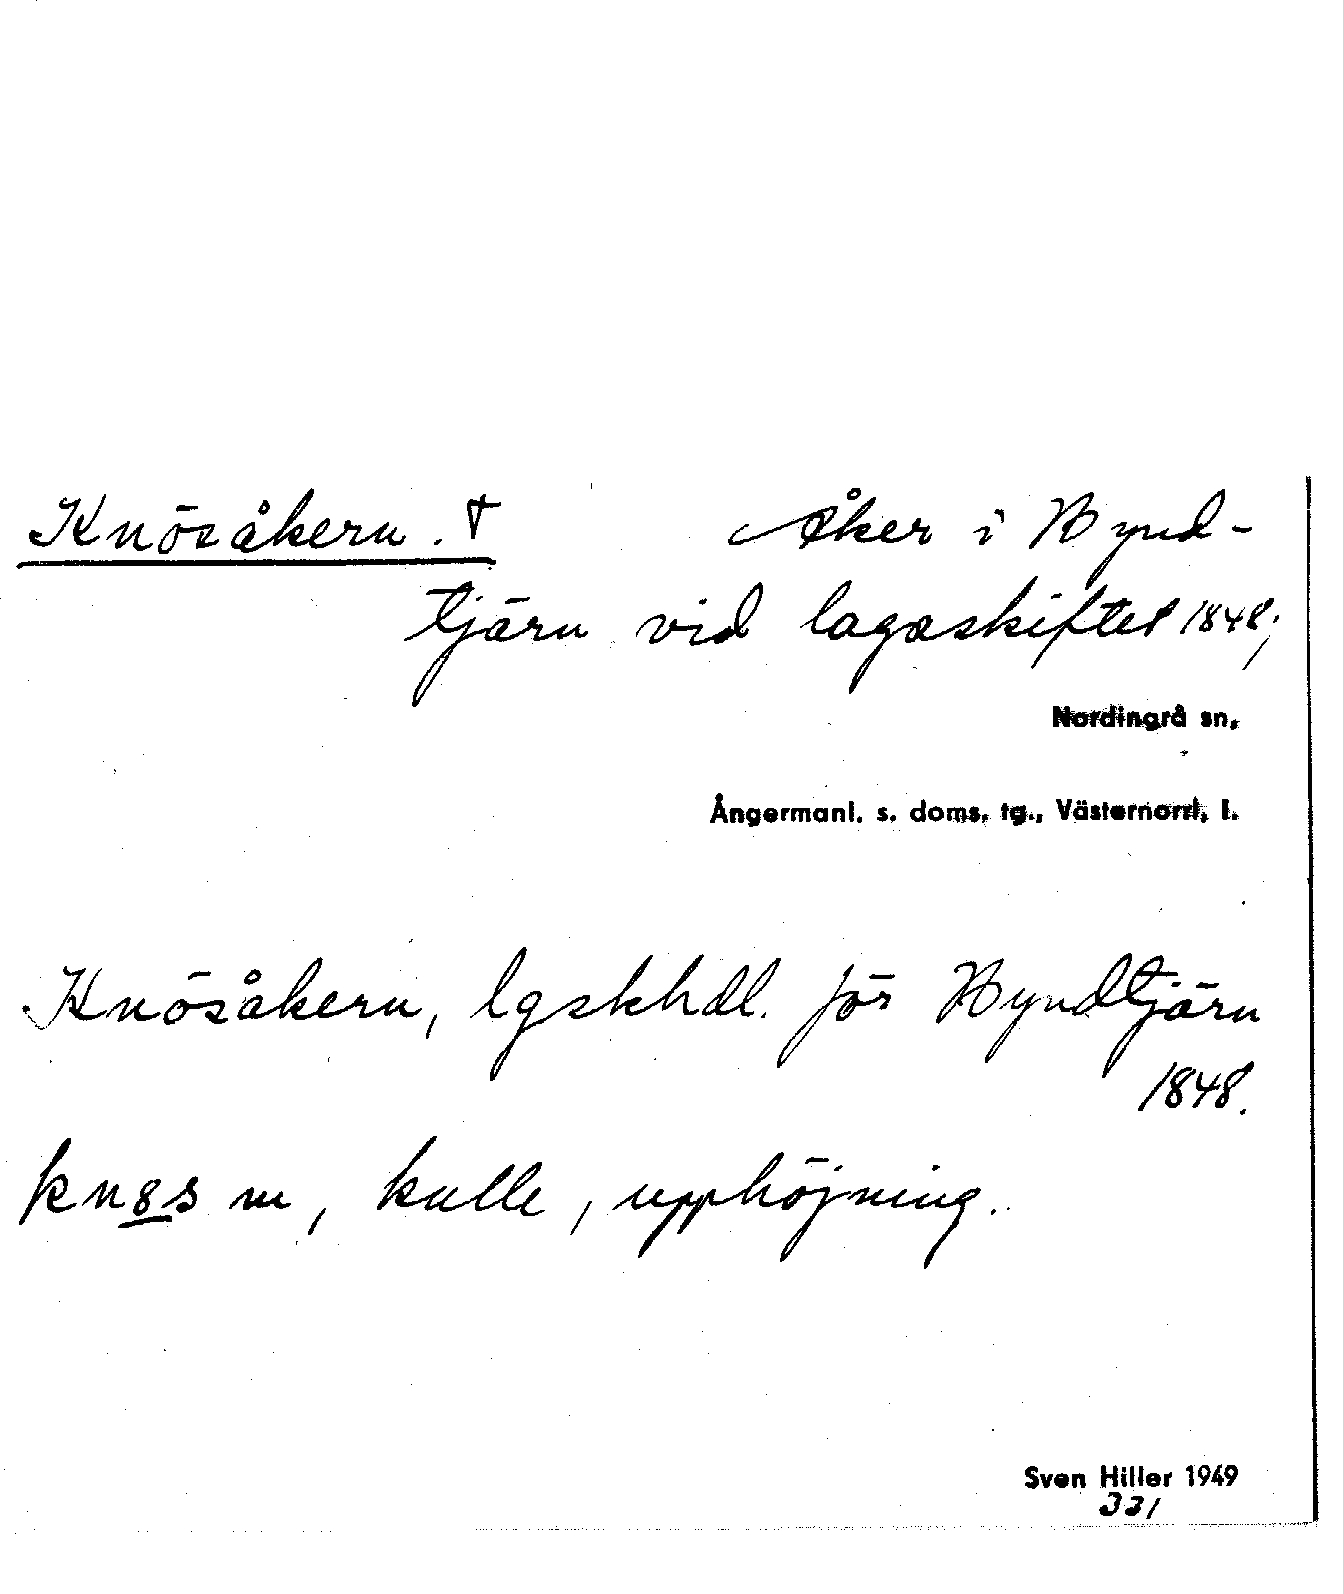 Knösåkern. † Åker i Hynd-
tjärn vid lagaskiftet 1848;
Nordingrå sn,
Ångermanl. s. doms. tg., Västernorrl. l.
Knösåkern, lgskhdl. för Hyndtjärn
1848.
kn8s m, kulle, upphöjning.
Sven Hiller 1949
331